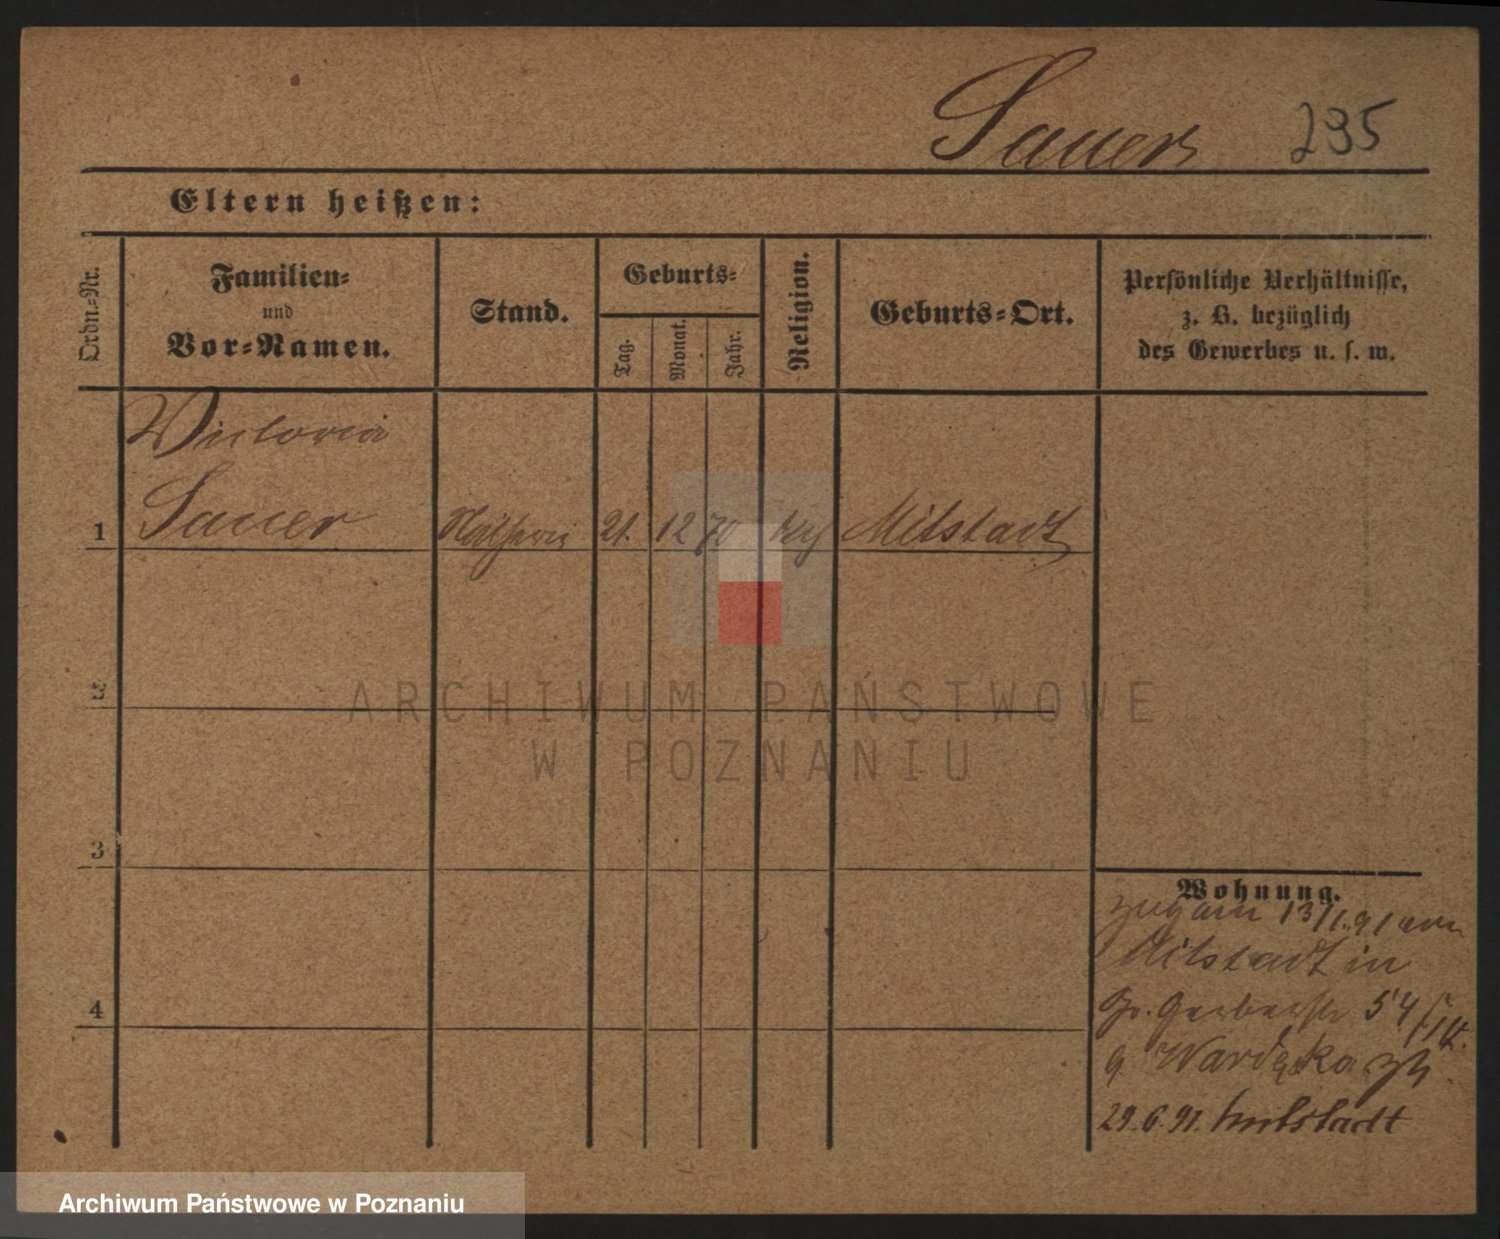 Sauer 295
Eltern heißen:
Ordn.-Nr.
Familien-
und
Vor-Namen.
Stand.
Geburts-
Tag.
Monat.
Jahr.
Religion.
Geburts-Ort.
Persönliche Verhältnisse,
z. B. bezüglich
des Gewerbes u. s. w.
Victoria
1 Sauer Näherin 21. 12 70 Milstadt
2
3
4
Wohnung.
zug am 13/1.91 von
Milstadt in
Gr. Gerberstr 54
29.6.91. Milstadt
ARCHIWUM PAŃSTWOWE
W POZNANIU
Archiwum Państwowe w Poznaniu